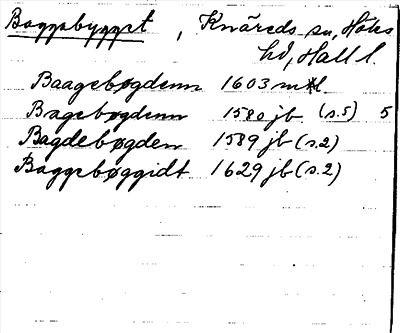 Baggabygget, Knäreds sn, Höks
hd, Hall l.
Baagebøgdenn 1603 mtl.
Bagebøgdenn 1580 jb (s.5) 5
Bagdebøgden 1589 jb (s.2)
Baggebøggidt 1629 jb (s.2)